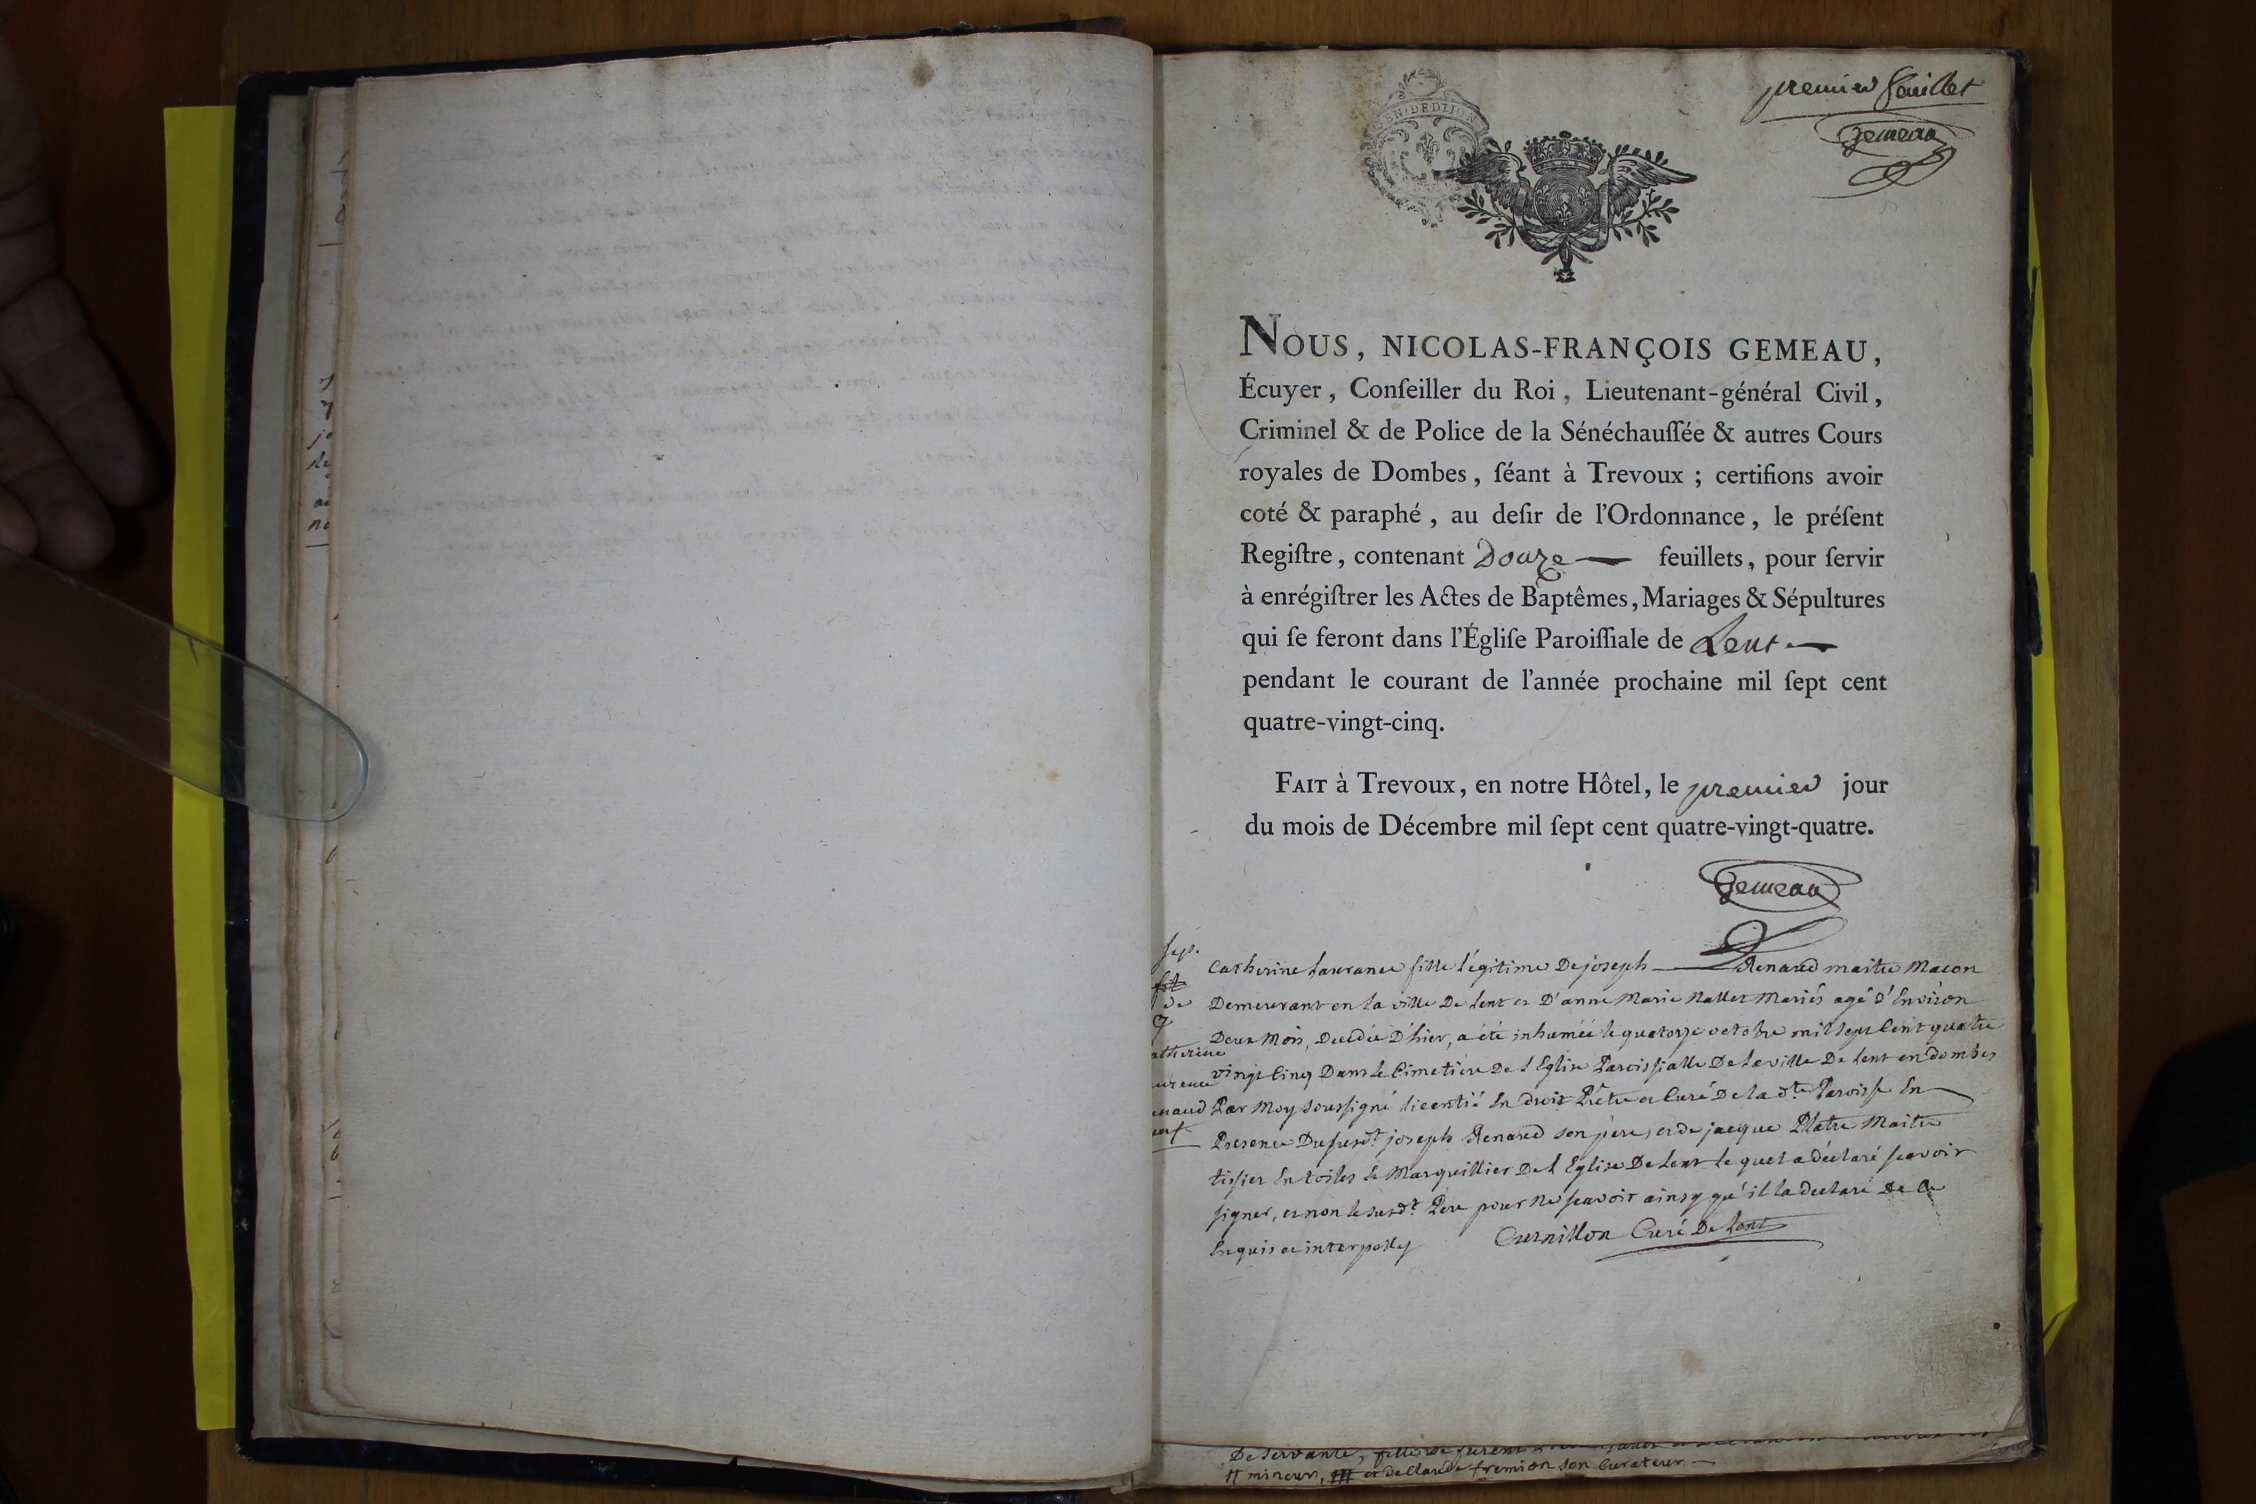 premier feuillet
Gemeau
GEN·DE DIJON
NOUS, NICOLAS-FRANÇOIS GEMEAU,
Écuyer, Conſeiller du Roi, Lieutenant-général Civil,
Criminel & de Police de la Sénéchauſſée & autres Cours
royales de Dombes, ſéant à Trevoux ; certifions avoir
coté & paraphé, au deſir de l'Ordonnance, le préſent
Regiſtre, contenant Douze feuillets, pour ſervir
à enrégiſtrer les Actes de Baptêmes, Mariages & Sépultures
qui ſe feront dans l'Égliſe Paroiſſiale de Lent
pendant le courant de l'année prochaine mil ſept cent
quatre-vingt-cinq.
FAIT à Trevoux, en notre Hôtel, le premier jour
du mois de Décembre mil ſept cent quatre-vingt-quatre.
Gemeau
sep.
de
atherine
urence
enaud
Catherine Laurance fille légitime De joseph Renaud maitre Macon
Demeurant en la ville De Lent et D'anne Marie Nallet Mariés agé d'Environ
Deux Mois, Decedée D'hier, a été inhumée le quatorze octobre mil sept Cent quatre
vingt Cinq Dans le Cimetière De l'Eglise Paroissialle De la ville De Lent en Dombes
Par Moy soussigné licentié En droit Prêtre et Curé De la dte Paroisse En
Presence Du susdt joseph Renaud son père, et de jacque Platre Maitre
tissier En toiles & Marguillier De l'Eglise De Lent lequel a déclaré scavoir
signer, et non le susdt Père pour ne scavoir ainsy qu'il la déclaré de Ce
Enquis et interpellé
Curnillon Curé De Lent
De servante, fille de
mineure, et de Claude fremion son Curateur